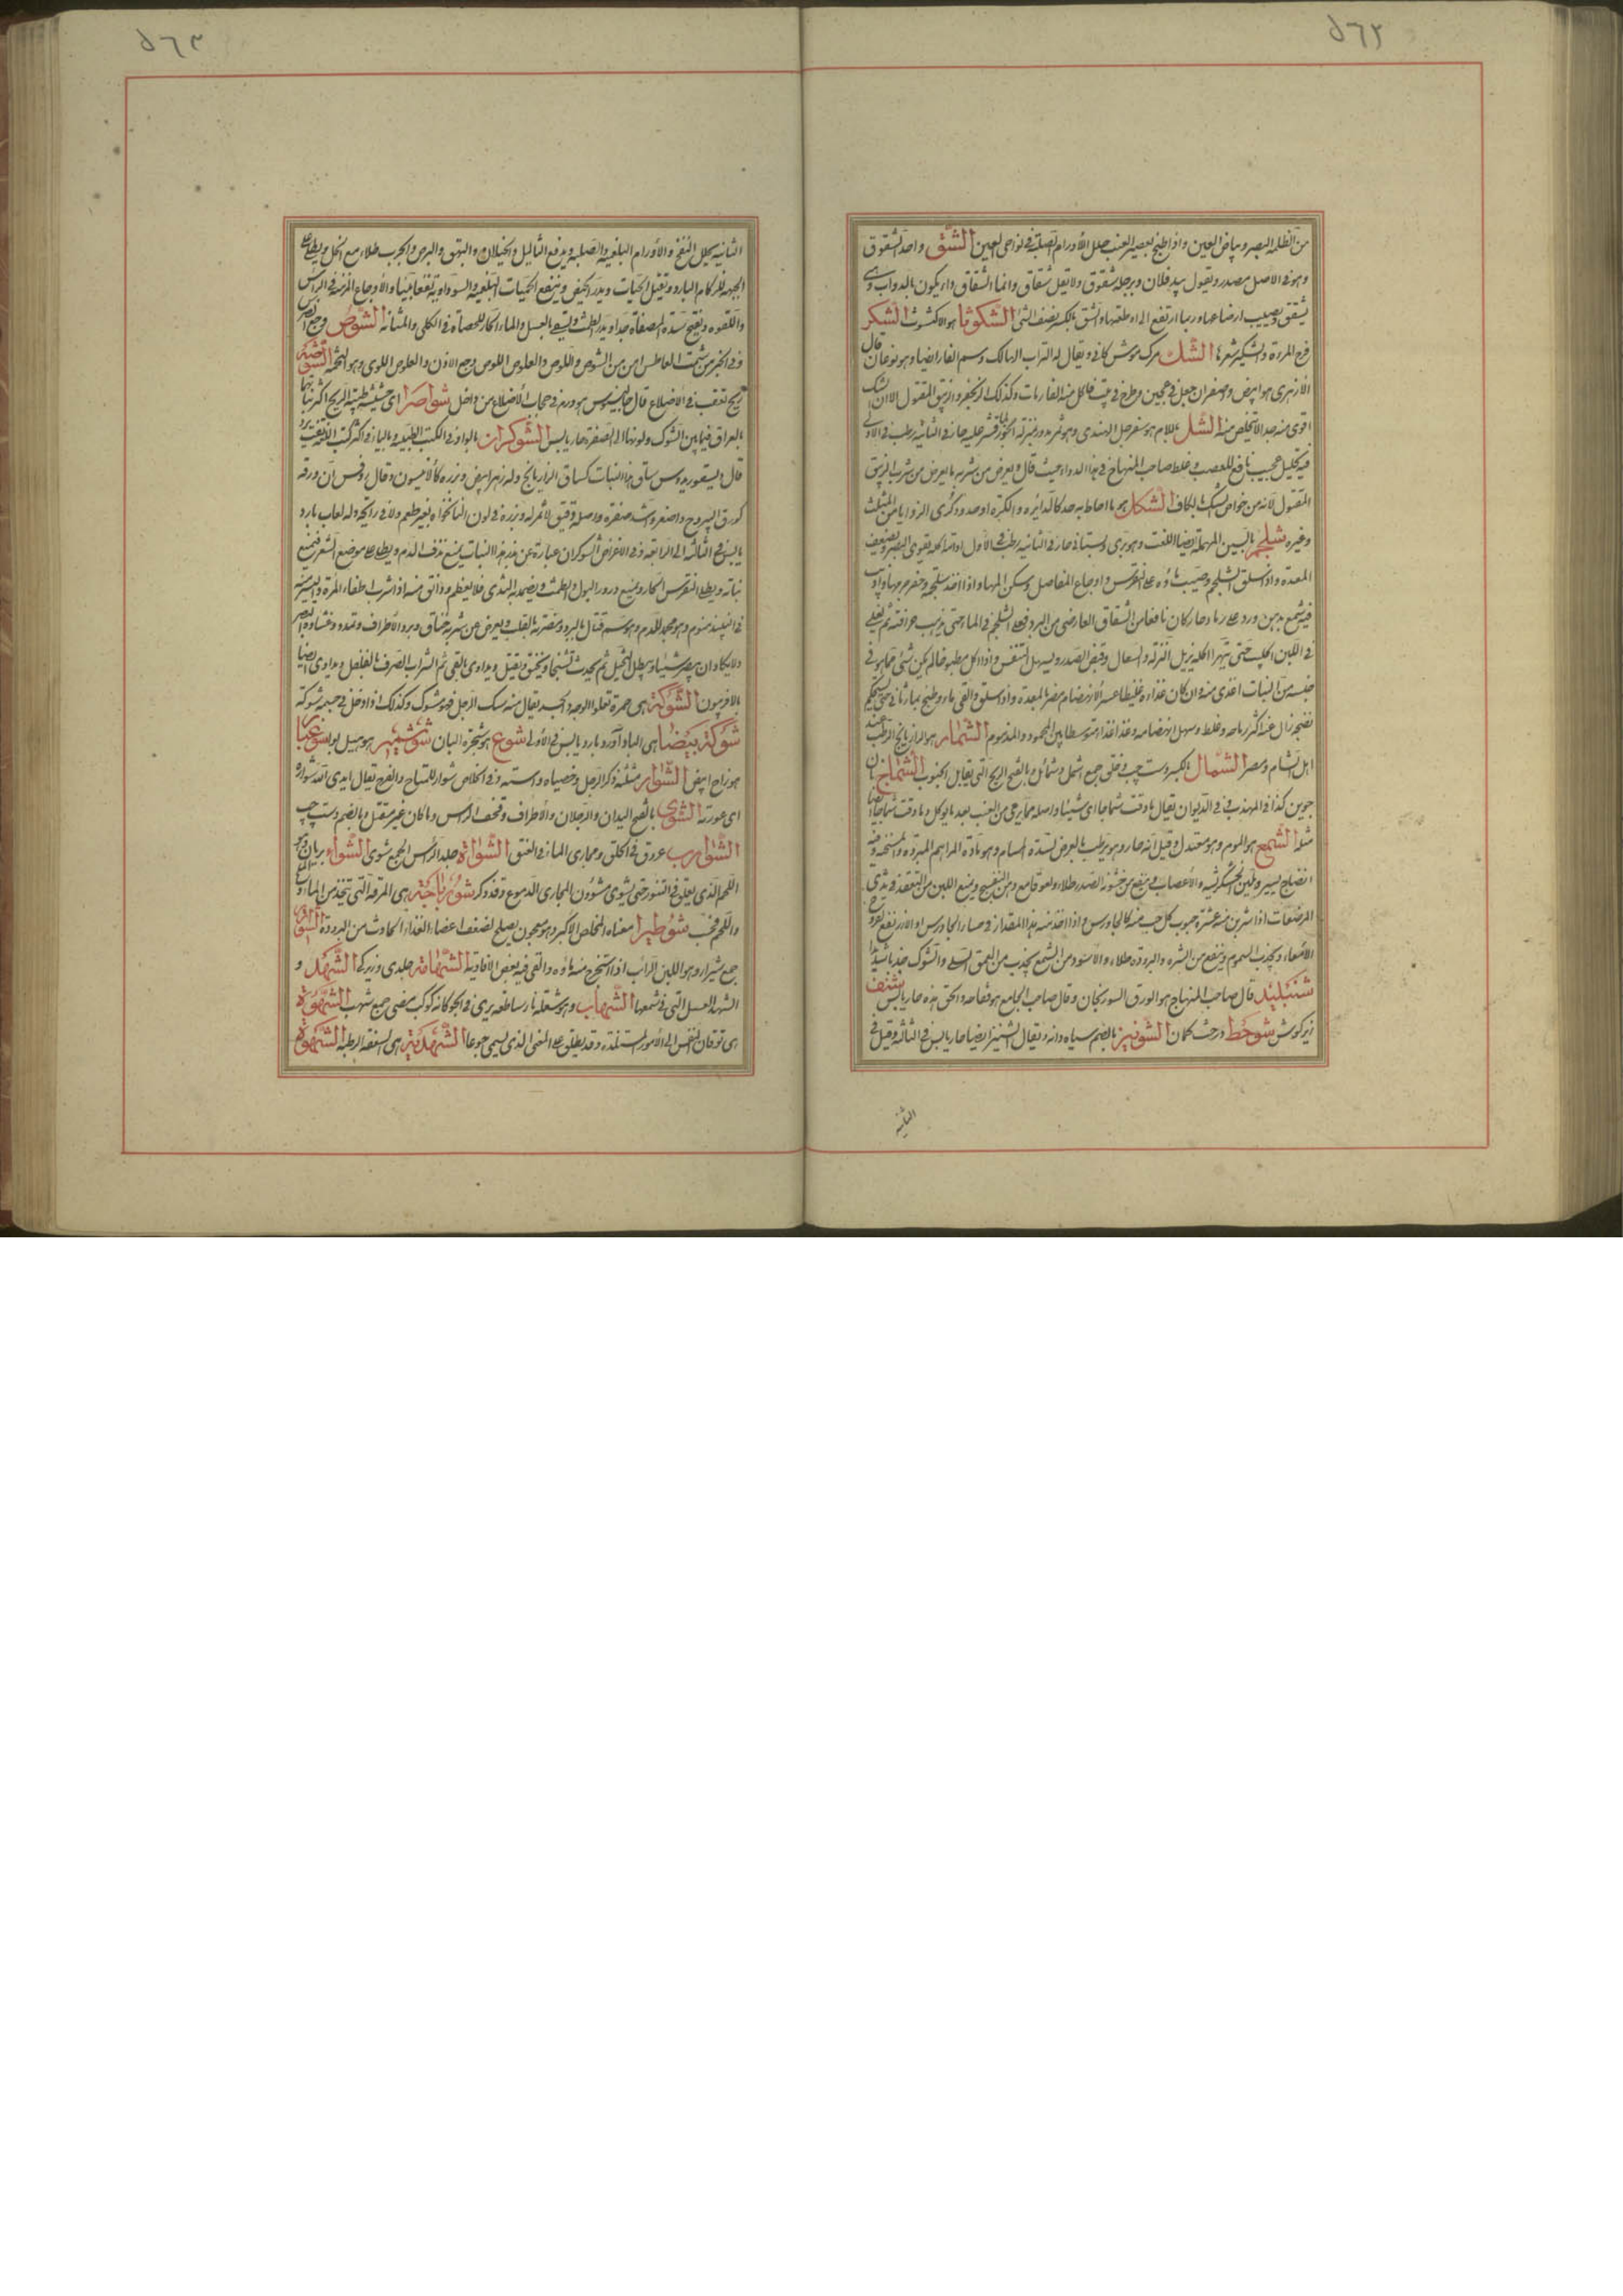 ٥٦٢
من الظلمة البصر وبياض العين واذا طبخ بعصير العنب حلل الأورام الصلبة في نواحي العين الشق واحد الشقوق
وهو في الاصل مصدر وتقول بيد فلان وبرجله شقوق ولا تقل شقاق وانما الشقاق داء يكون بالدواب وهي
يشقق يصيب ارضاعها وربما ارتفع الى اوظفتها والشق بالكسر نصف الشئ الشكوثا هو الاكشوث الشكر
فرج المرءة والشكير شعرها الشك مرك موش كاني ويقال له التراب الهالك وسم الفار ايضا وهو نوعان قال
الأزهري هو ابيض واصفر ان جعل في عجين وطرح في بيت فاكل منه الفار مات وكذلك الزنجفر والزيبق المقتول الا ان الشك
اقوى منه جدا لا تخلص منه الشل باللام هو سفرجل الهندي وهو ثمر مدور بمنزلة الجوز قشر عليه حار في الثانية رطب في الاولى
فيه تحليل عجيب نافع للعصب وغلط صاحب المنهاج في هذا الدواء حيث قال ويعرض من شربه ما يعرض من شرب الزيبق
المقتول لأنه من خواص الشك بالكاف الشكل هو ما احاط به حد كالدائرة والكرة او حدود كذى الزوايا من المثلث
وغيره شلجم بالسين المهملة ايضا اللفت وهو بري وبستاني حار في الثانية رطب في الأول ادامة اكله يقوى البصر ويضعف
المعدة واذا سلق الشلجم وصبت ماؤه على النقرس واوجاع المفاصل وسكن المها واذا اخذ سلجمة وحفر جوفها واذيب
فيه شمع بدهن ورد على رماد حار كان نافعا من الشقاق العارض من البرد فى الشلجم في الماء حتى يذهب حرافته ثم يغلى
في اللبن الحليب حتى يتهرا اكله يزيل النزلة والسعال وقبض الصدر ويسهل التنفس واذا اكل مطبوخا لم يكن شئ مما هو في
جنسه من النبات اغذى منه وان كان غذاؤه غليظا عسر الانهضام مضر بالمعدة واذا سلق والقى ماءه وطبخ بماء ثاني حتى يستحكم
نضجه زال عنه اكثر رياحه وغلظه وسهل انهضامه وغذا غذاء متوسطا بين المحمود والمذموم الشمار هو الرازيانج الرطب عند
اهل الشام ومصر الشمال بالكسر دست چپ وخلق جمع اشمل وشمائل وبالفتح الريح التي تقابل الجنوب الشماج نان
جوين كذا في المهذب في الديوان يقال ما ذقت شماجا اى شيئا واصله ما يرمى من العنب بعد ما يوكل ما ذقت شماجا ايضا
مثله الشمع هو الموم وهو معتدل وقيل انه حار وهو يرطب بالعرض لسده المسام وهو مادة المراهم المبردة والمسخنة وفيه
انضاج يسير وتليين الحسكريشة والأعصاب وينفع من خشونة الصدر طلاء ولعوقا مع دهن البنفسج ويمنع اللبن من التعقد في ثدى
المرضعات اذا شربن منه عشرة حبوب كل حب منه كالجاورس واذا اخذ منه هذا المقدار في حساء الجاورس او الارز نفع قروح
الأمعاء ويجذب السموم وينفع من الشره والبرودة طلاء والاسود من الشمع يجذب من العمق السلى والشوك جذبا شديدا
شنبليد قال صاحب المنهاج هو الورق السورنجان وقال صاحب الجامع هو فقاحه والحق هذه حار يابس شنف
زبر گوش شوحط درخت كمان الشونيز بالضم سياه دانه ويقال الشينيز ايضا حار يابس في الثالثة وقيل في
الثانية
٥٦٣
الثانية يحلل النفخ والأورام البلغمية والصلبة ويدفع الثاليل والخيلان والبهق والبرص والجرب طلاء مع الخل ويطلى على
الجبهة للزكام البارد ويقتل الحيات ويدر الحيض وينفع الحميات البلغمية والسوداوية نفعا بينا والأوجاع المزمنة في الراس
واللقوه ويفتح سدة المصفاة جدا ويدر الطمث ويسقى بالعسل والماء الحار للحصاة في الكلى والمثانة الشوص وجع الضرس
وفي الخبر من شمت العاطس امن من الشوص واللوص والعلوص اللوص وجع الاذن والعلوص اللوى وهو التخمة الشوصة
ريح تعقب في الأضلاع قال جالينوس هو ورم في حجاب الأضلاع من داخل شواصرا اى حشيشة طيبة الريح اكثر نباتها
بالعراق فيما بين الشوك ولونها الى الصفرة حار يابس الشوكران بالواو في الكتب الطبية وبالياء في اكثر كتب اللغة تعريب
قال ديسقوريدوس ساق هذا النبات كساق الرازيانج وله زهر ابيض وبزره كالأنيسون وقال روفس ان ورقه
كورق اليبروح واصغر واشد صفرة واصله دقيق لا ثمر له وبزره في لون النانخواه بغير طعم ولا رائحة وله لعاب بارد
يابس في الثالثة الى الرابعة وفي الاغراض الشوكران عبارة عن بزر هذا النبات يمنع نزف الدم ويطلى على موضع الشعر فيمنع
نباته ويطلى النقرس الحار ويمنع درور البول والطمث ويضمد به الثدى فلا يعظم وذائق منه اذا شرب اطفاء المرة
في النبيذ منوم وهو مجمد للدم وهو سم قتال بالبرد ومضرته بالقلب ويعرض من شربه خناق وبرد الأطراف وتمدد وغشاوة البصر
ولا يكاد ان يبصر شيئا ويبطل التخيل ثم يحدث تشنجا ويخنق ويقتل ويداوى بالقى ثم الشراب الصرف بالفلفل ويداوى ايضا
بالافربيون الشوكة هى حمرة تعلو الوجه والجسد يقال منه شيك الرجل فهو مشوك وكذلك اذا دخل في جسمه شوكة
شوكة بيضا هى الباداورد بارد يابس في الأولى شوع هو شجرة البان شوشمير هو هيل بوا شوغبا
هو زاج ابيض الشوار مثلثة ذكر الرجل وخصياه واسته وفي الخلاص شوار للمتاع والفرج يقال ابدى الله شواره
اى عورته الشوى بالفتح اليدان والرجلان والأطراف وقحف الراس وما كان غير مقتل وبالضم دست چپ
الشوارب عروق في الحلق ومجارى الماء في العنق الشواة جلد الراس الجمع شوى الشواء بريان وهو
اللحم الذى يعلق في التنور حتى يشوى شوؤن المجارى الدموع وقد ذكر شورباجة هى المرقة التي تتخذ من الماء
واللحم فحسب شوطيرا معناه المخلص الاكبر وهو معجون يصلح لضعف اعضاء الغذاء الحادث من البرودة
جمع شيراز وهو اللبن الرائب اذا استخرج منه ماؤه والقى فيه بعض الافاوية الشهامة جلدى وزيركى الشهد و
الشهد العسل التي في شمعها الشهاب وهو شعلة نار ساطعة يرى في الجو كانه كوكب مضى جمع شهب الشهوة
هى توقان النفس الى الأمور المستلذة وقد يطلق على المعنى الذى يسمى جوعا الشهدية هى السعفة الرطبة الشهوة